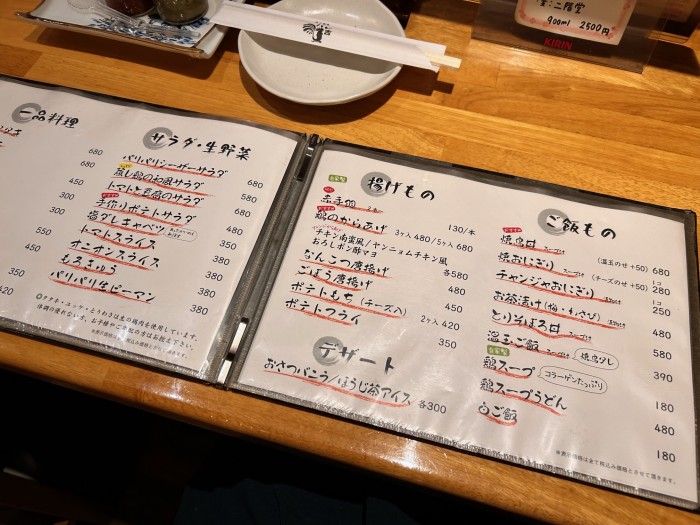 900ml 2500円
KIRIN
一品料理
680
680
450
300
300
550
450
350
420
サラダ・生野菜
パリパリシーザーサラダ 680
蒸し鶏の和風サラダ 580
トマトと豆腐のサラダ 680
手作りポテトサラダ 480
塩ダレキャベツ 380
トマトスライス 380
オニオンスライス 380
もろきゅう 380
パリパリ生ピーマン 380
揚げもの
130/本
鶏のからあげ 3ヶ入480/5ヶ入680
チキン南蛮風/ヤンニョムチキン風
おろしポン酢マヨ 各580
なんこつ唐揚げ 480
ごぼう唐揚げ 450
ポテトもち(チーズ入) 2ヶ入 420
ポテトフライ 350
デザート
おさつバニラ/ほうじ茶アイス 各300
ご飯もの
焼鳥丼 スープ付 (温玉のせ+50) 680
焼おにぎり (チーズのせ+50) 1コ 280
チャンジャおにぎり 1コ 250
お茶漬け(梅・わさび) 480
とりそぼろ丼 スープ付 580
温玉ご飯 焼鳥だし 390
鶏スープ コラーゲンたっぷり 180
鶏スープうどん 480
白ご飯 180
※表示価格は全て税込み価格とさせて頂きます。